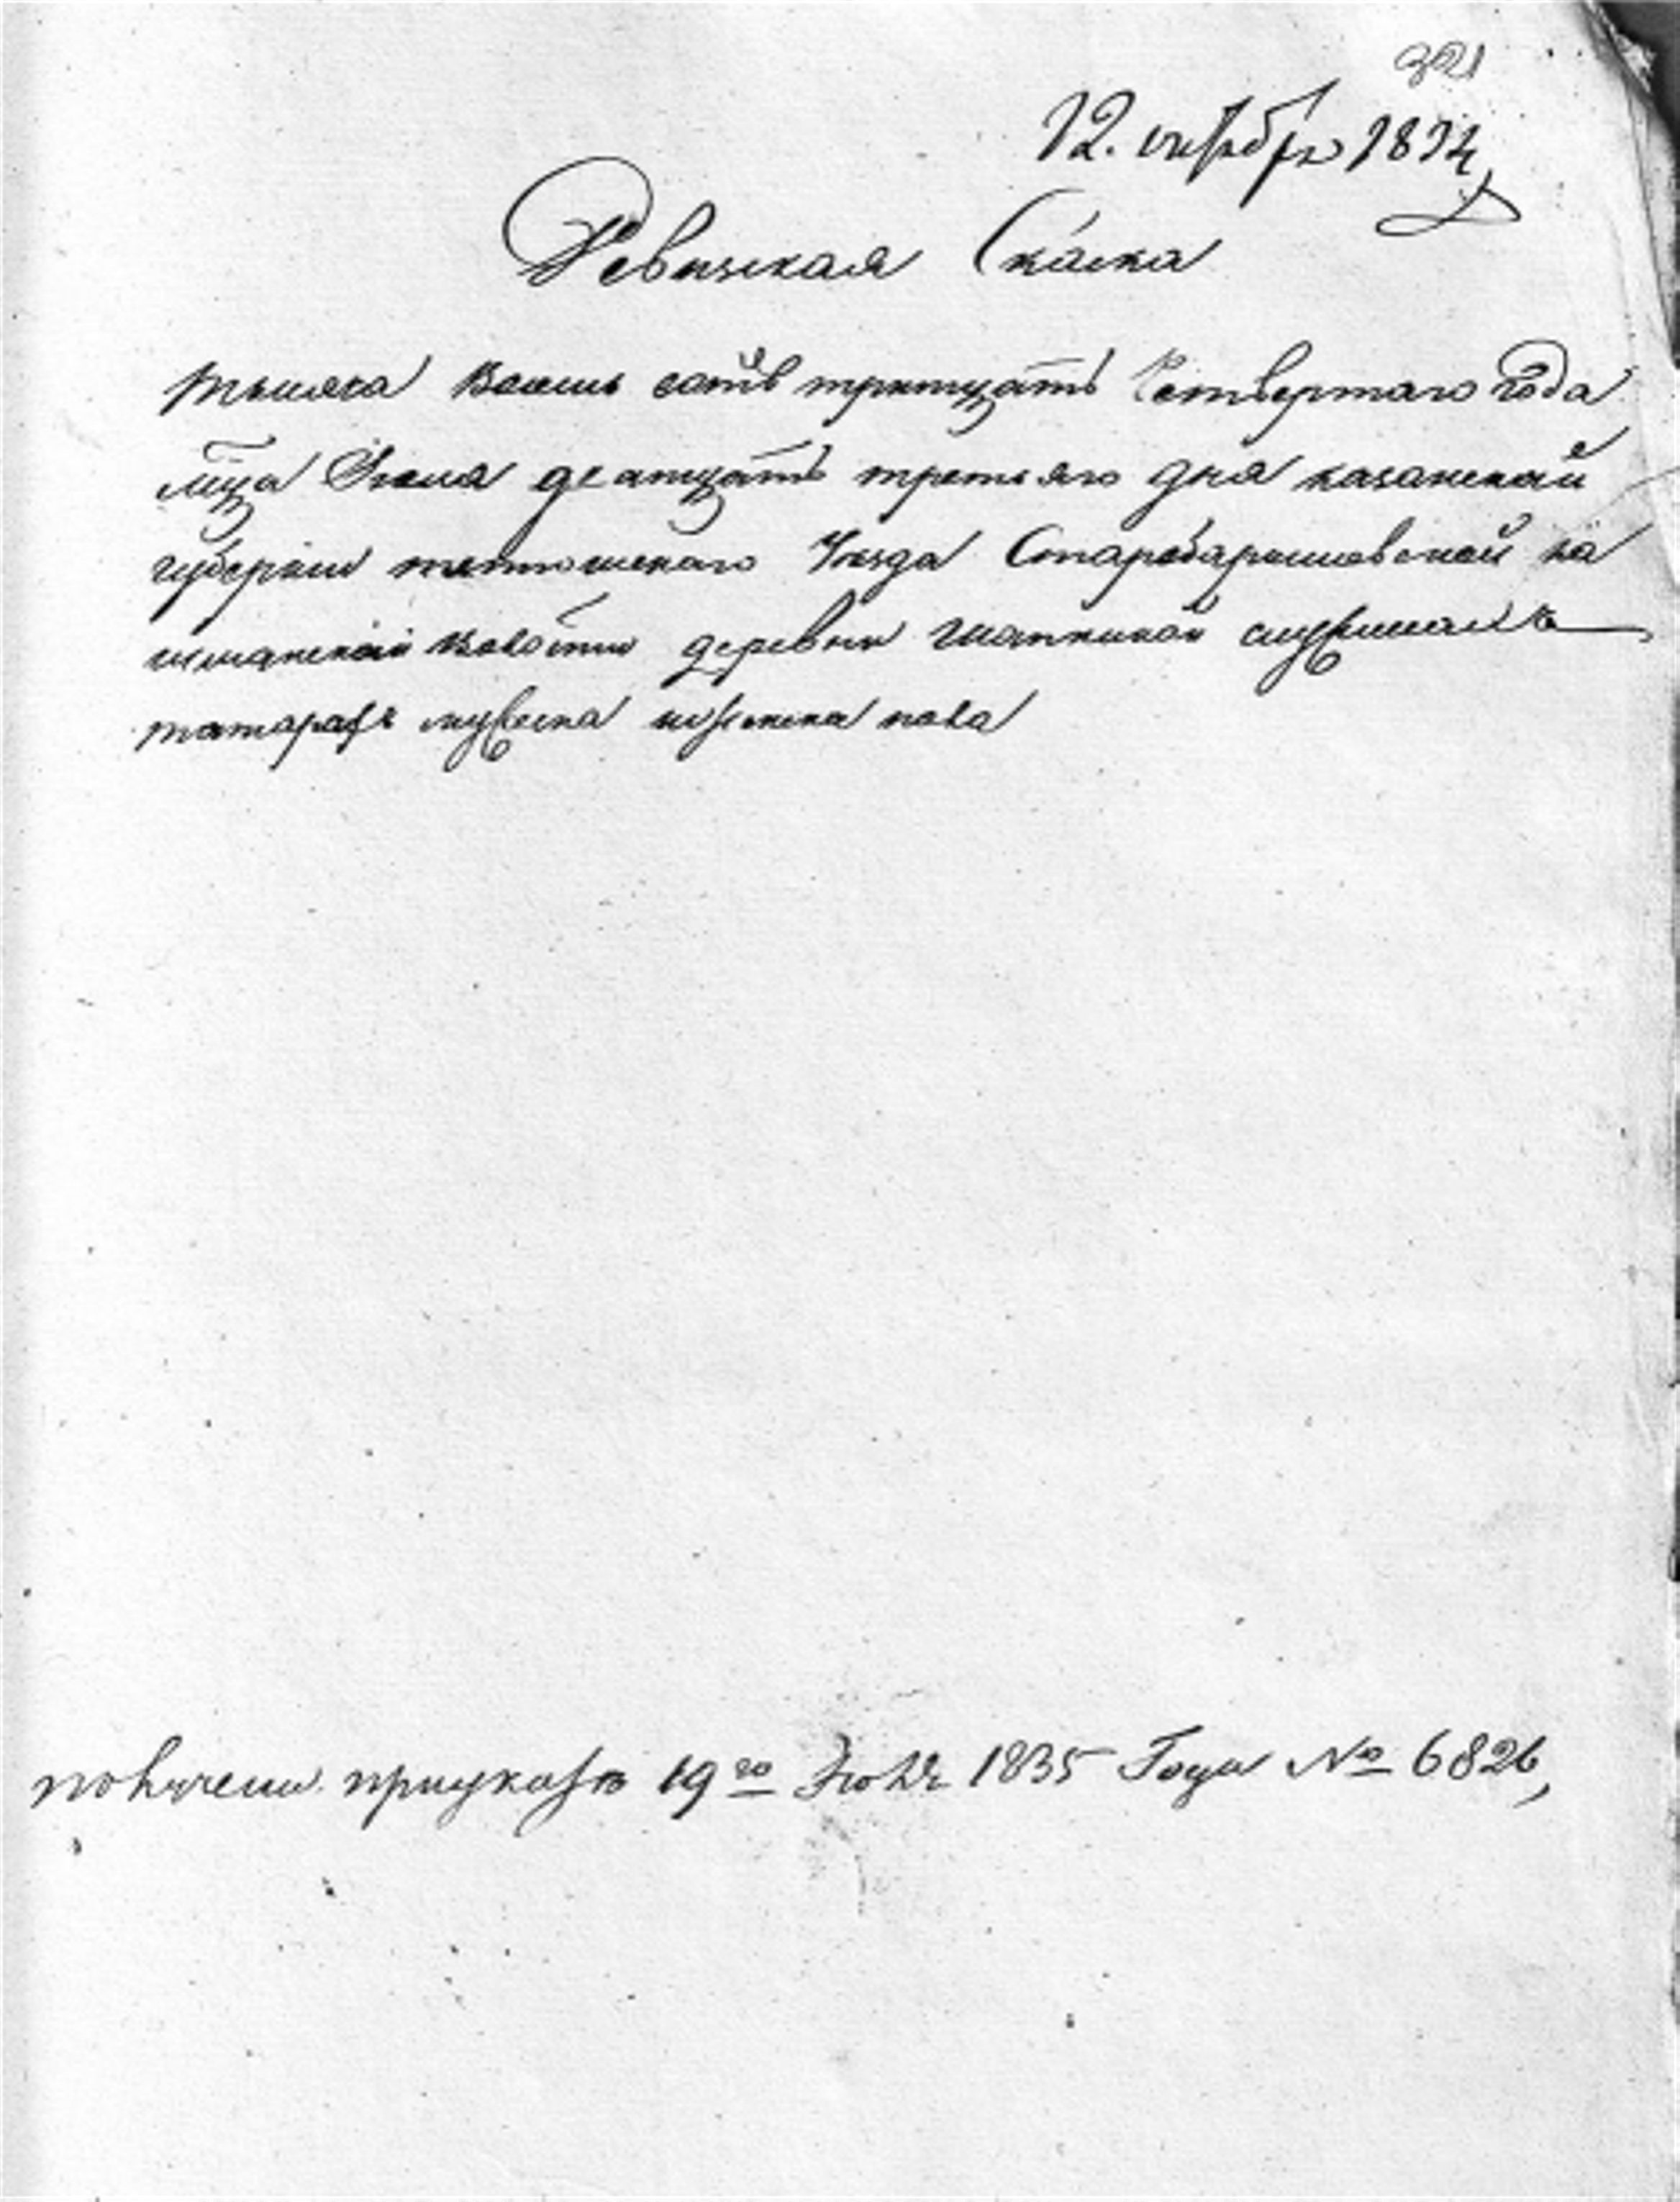 321
12. октября 1834
Ревизская Скаска
тысяча восемь сотъ тритцать Четвертаго года
мца Июля дватцать третьяго дня казанской
губернии тетюшскаго Уезда Старобарышевской ка
деревни служилыхъ
татарахъ мужеска женска пола
получена приуказе 19го Июля 1835 Года № 6826,